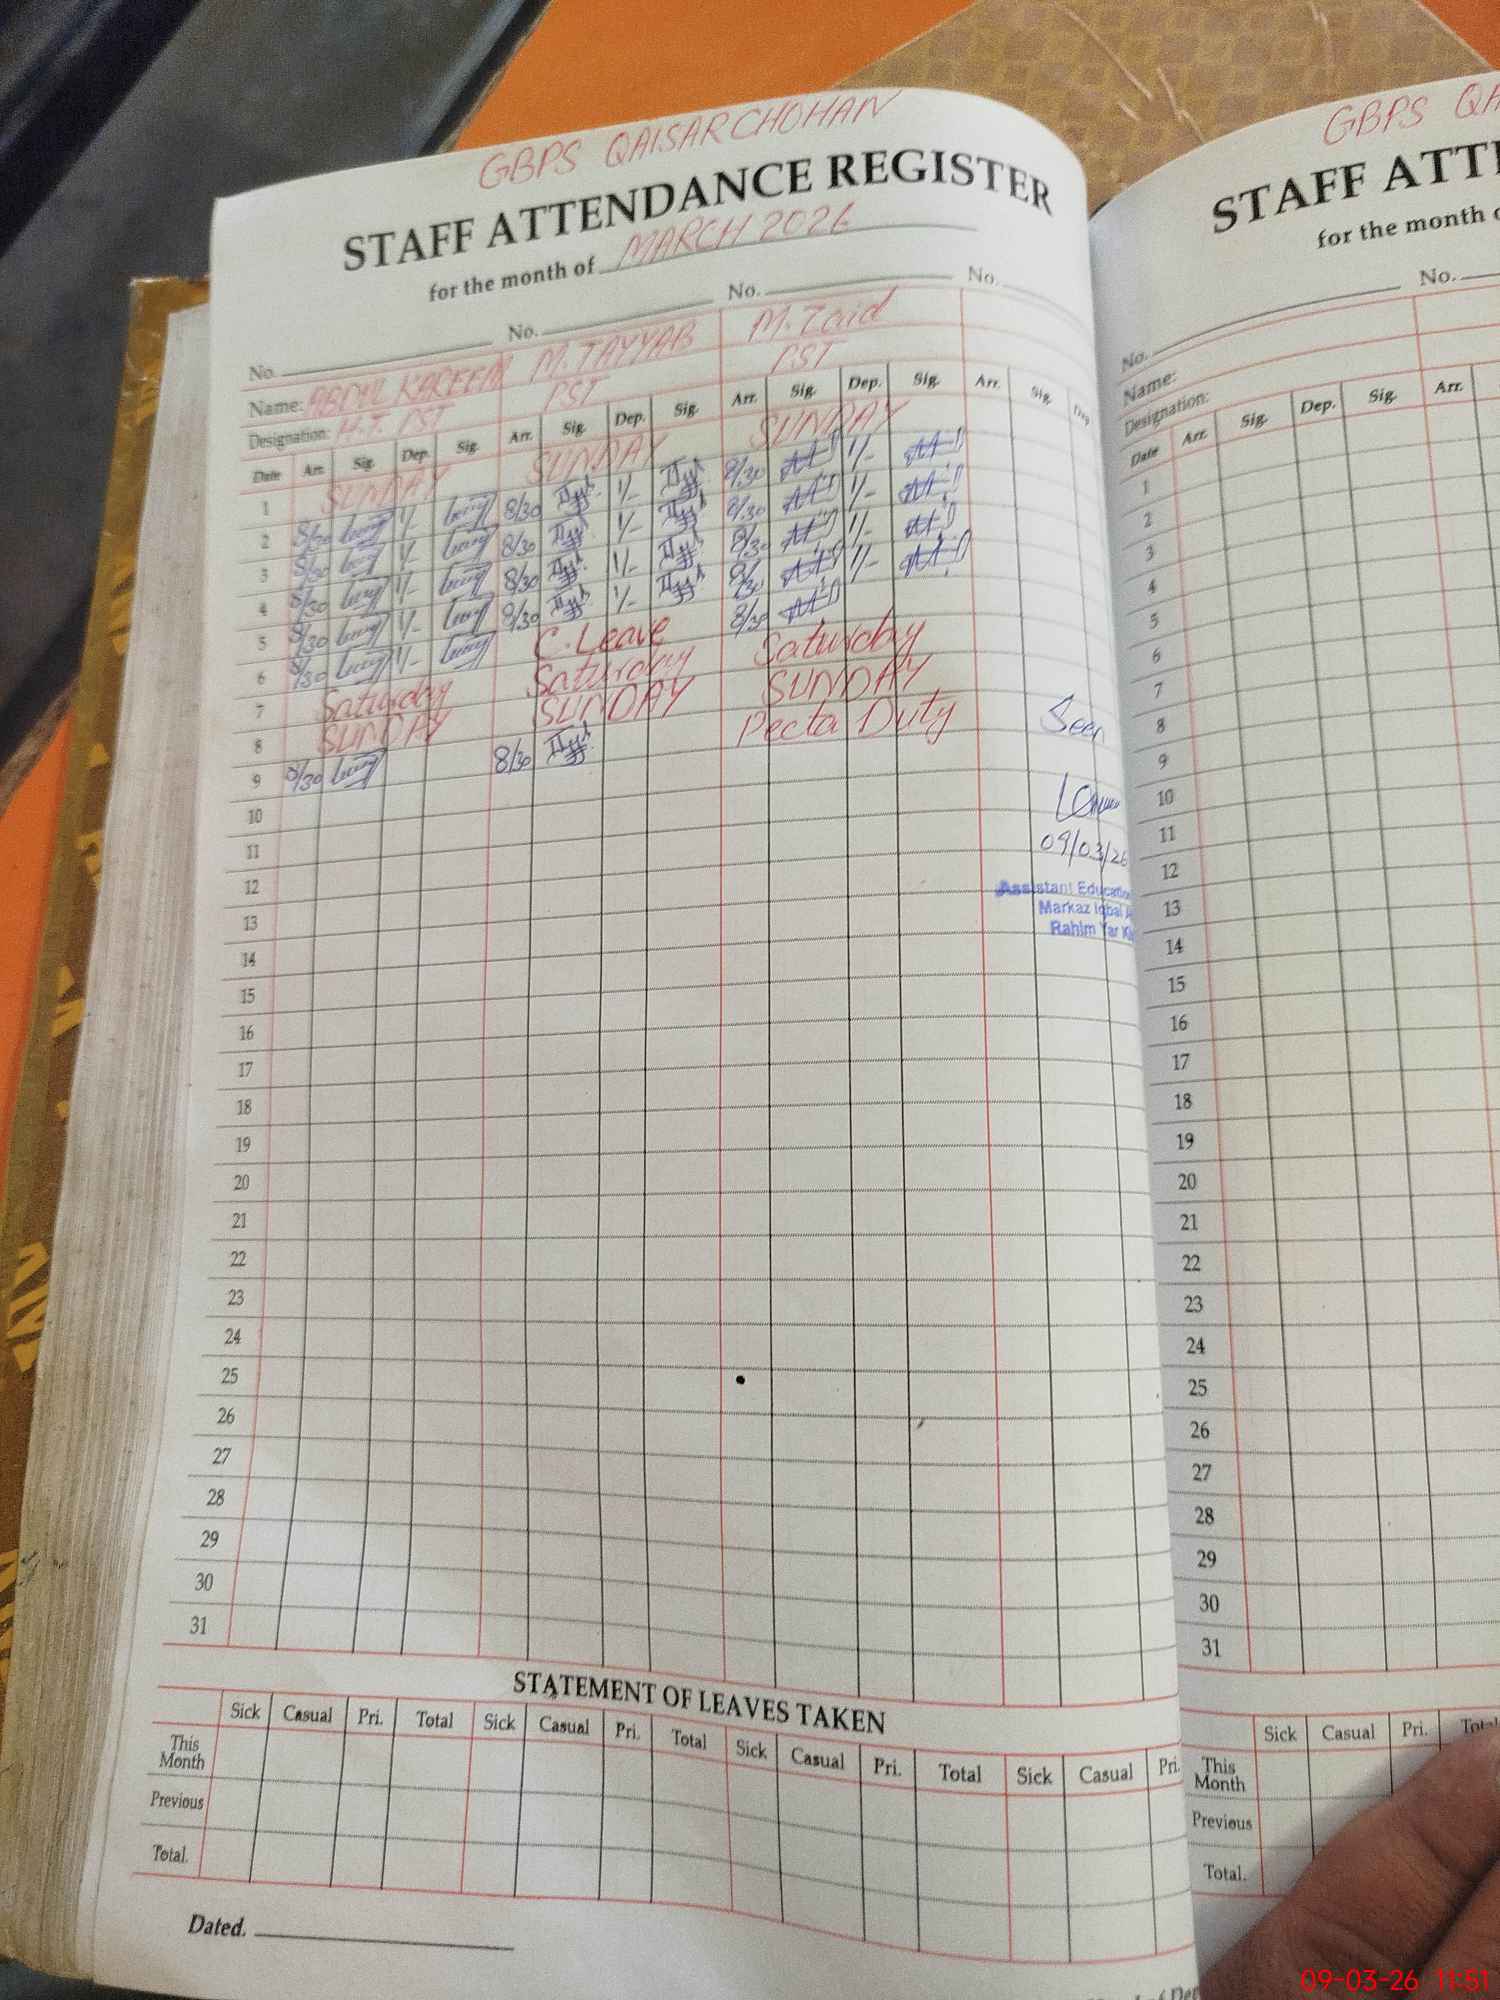 GBPS QAISAR CHOHAN
STAFF ATTENDANCE REGISTER
for the month of MARCH 2026
No. No. No. No.
Name: ABDUL KAREEM M. TAYYAB M. Zaid
Designation: H.T. PST PST PST
Date Arr. Sig. Dep. Sig. Arr. Sig. Dep. Sig. Arr. Sig. Dep. Sig. Arr. Sig. Dep
1 SUNDAY SUNDAY SUNDAY
2 8/30 1/- 8/30 1/- 8/30 1/-
3 8/30 1/- 8/30 1/- 8/30 1/-
4 8/30 1/- 8/30 1/- 8/30 1/-
5 8/30 1/- 8/30 1/- 8/30 1/-
6 8/30 1/- C. Leave 8/30
7 Saturday Saturday Saturday
8 SUNDAY SUNDAY SUNDAY
9 8/30 8/30 Pecta Duty
Seen
10
11
09/03/26
12
Assistant Education
Markaz Iqbal
Rahim Yar
13
14
15
16
17
18
19
20
21
22
23
24
25
26
27
28
29
30
31
STATEMENT OF LEAVES TAKEN
Sick Casual Pri. Total Sick Casual Pri. Total Sick Casual Pri. Total Sick Casual Pri.
This Month
Previous
Total.
Dated.
GBPS QA
STAFF ATT
for the month
No. No.
Name:
Designation:
Date Arr. Sig. Dep. Sig. Arr.
1
2
3
4
5
6
7
8
9
10
11
12
13
14
15
16
17
18
19
20
21
22
23
24
25
26
27
28
29
30
31
Sick Casual Pri. Total
This Month
Previous
Total.
09-03-26 11:51